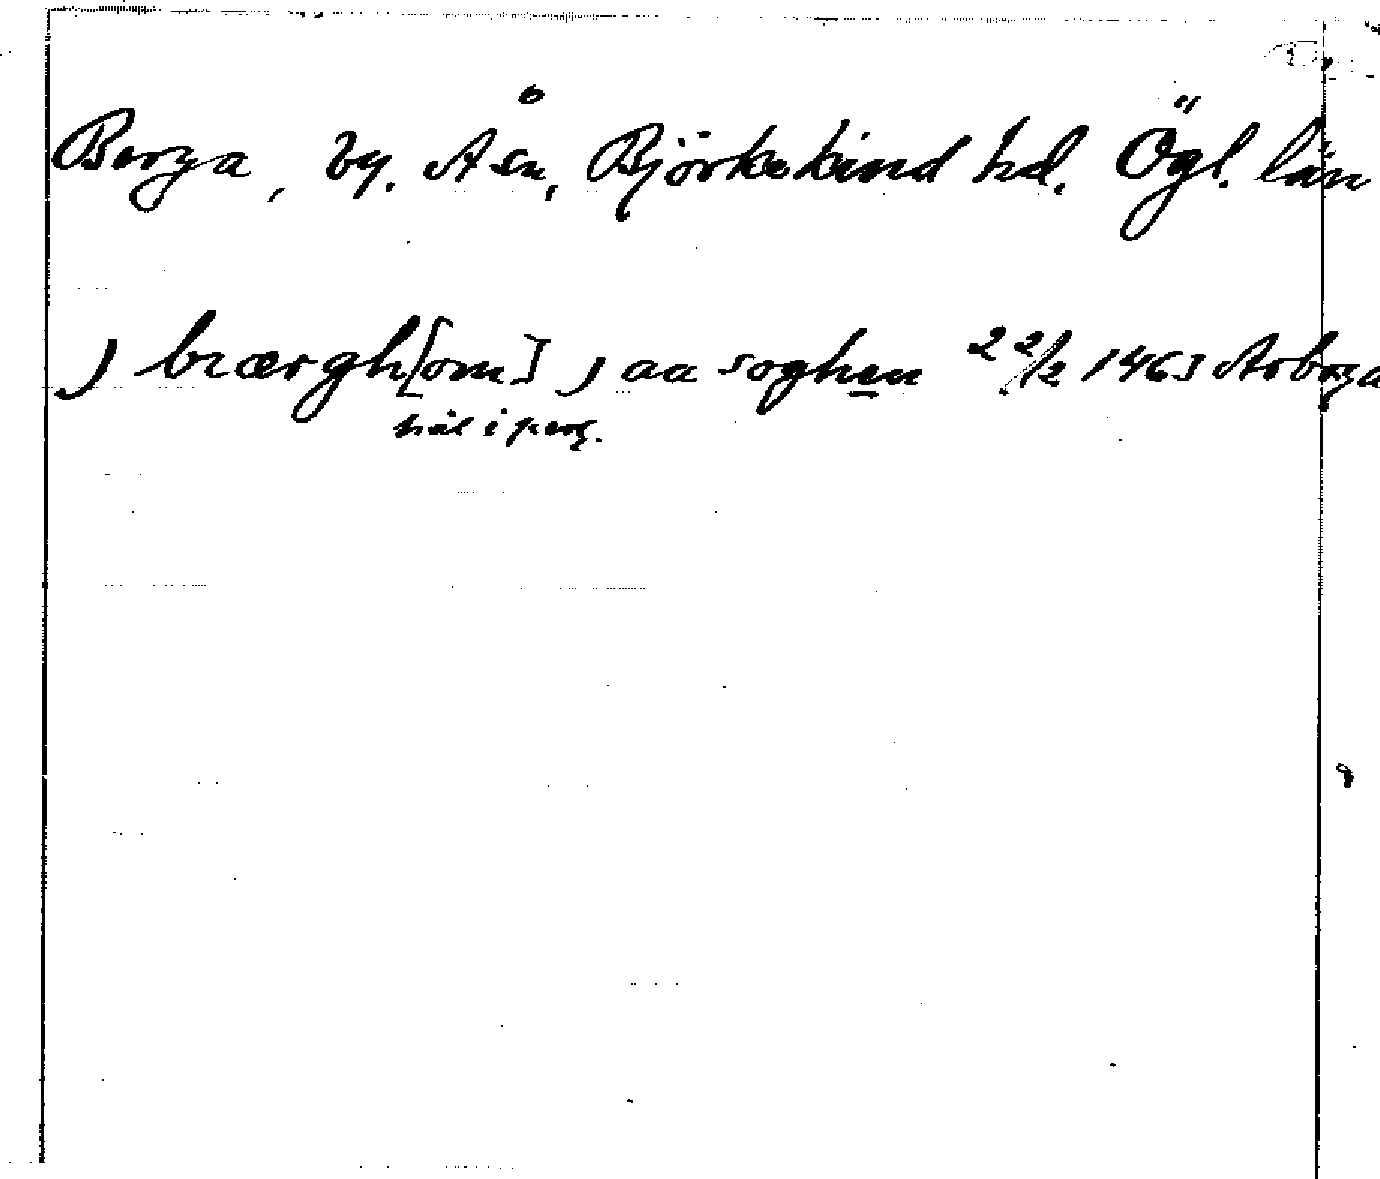 Borga, by. Å sn, Björkekind hd. Ögl. län
j bærgh[om] j aa soghen 22/2 1463 Arboga
hål i perg.